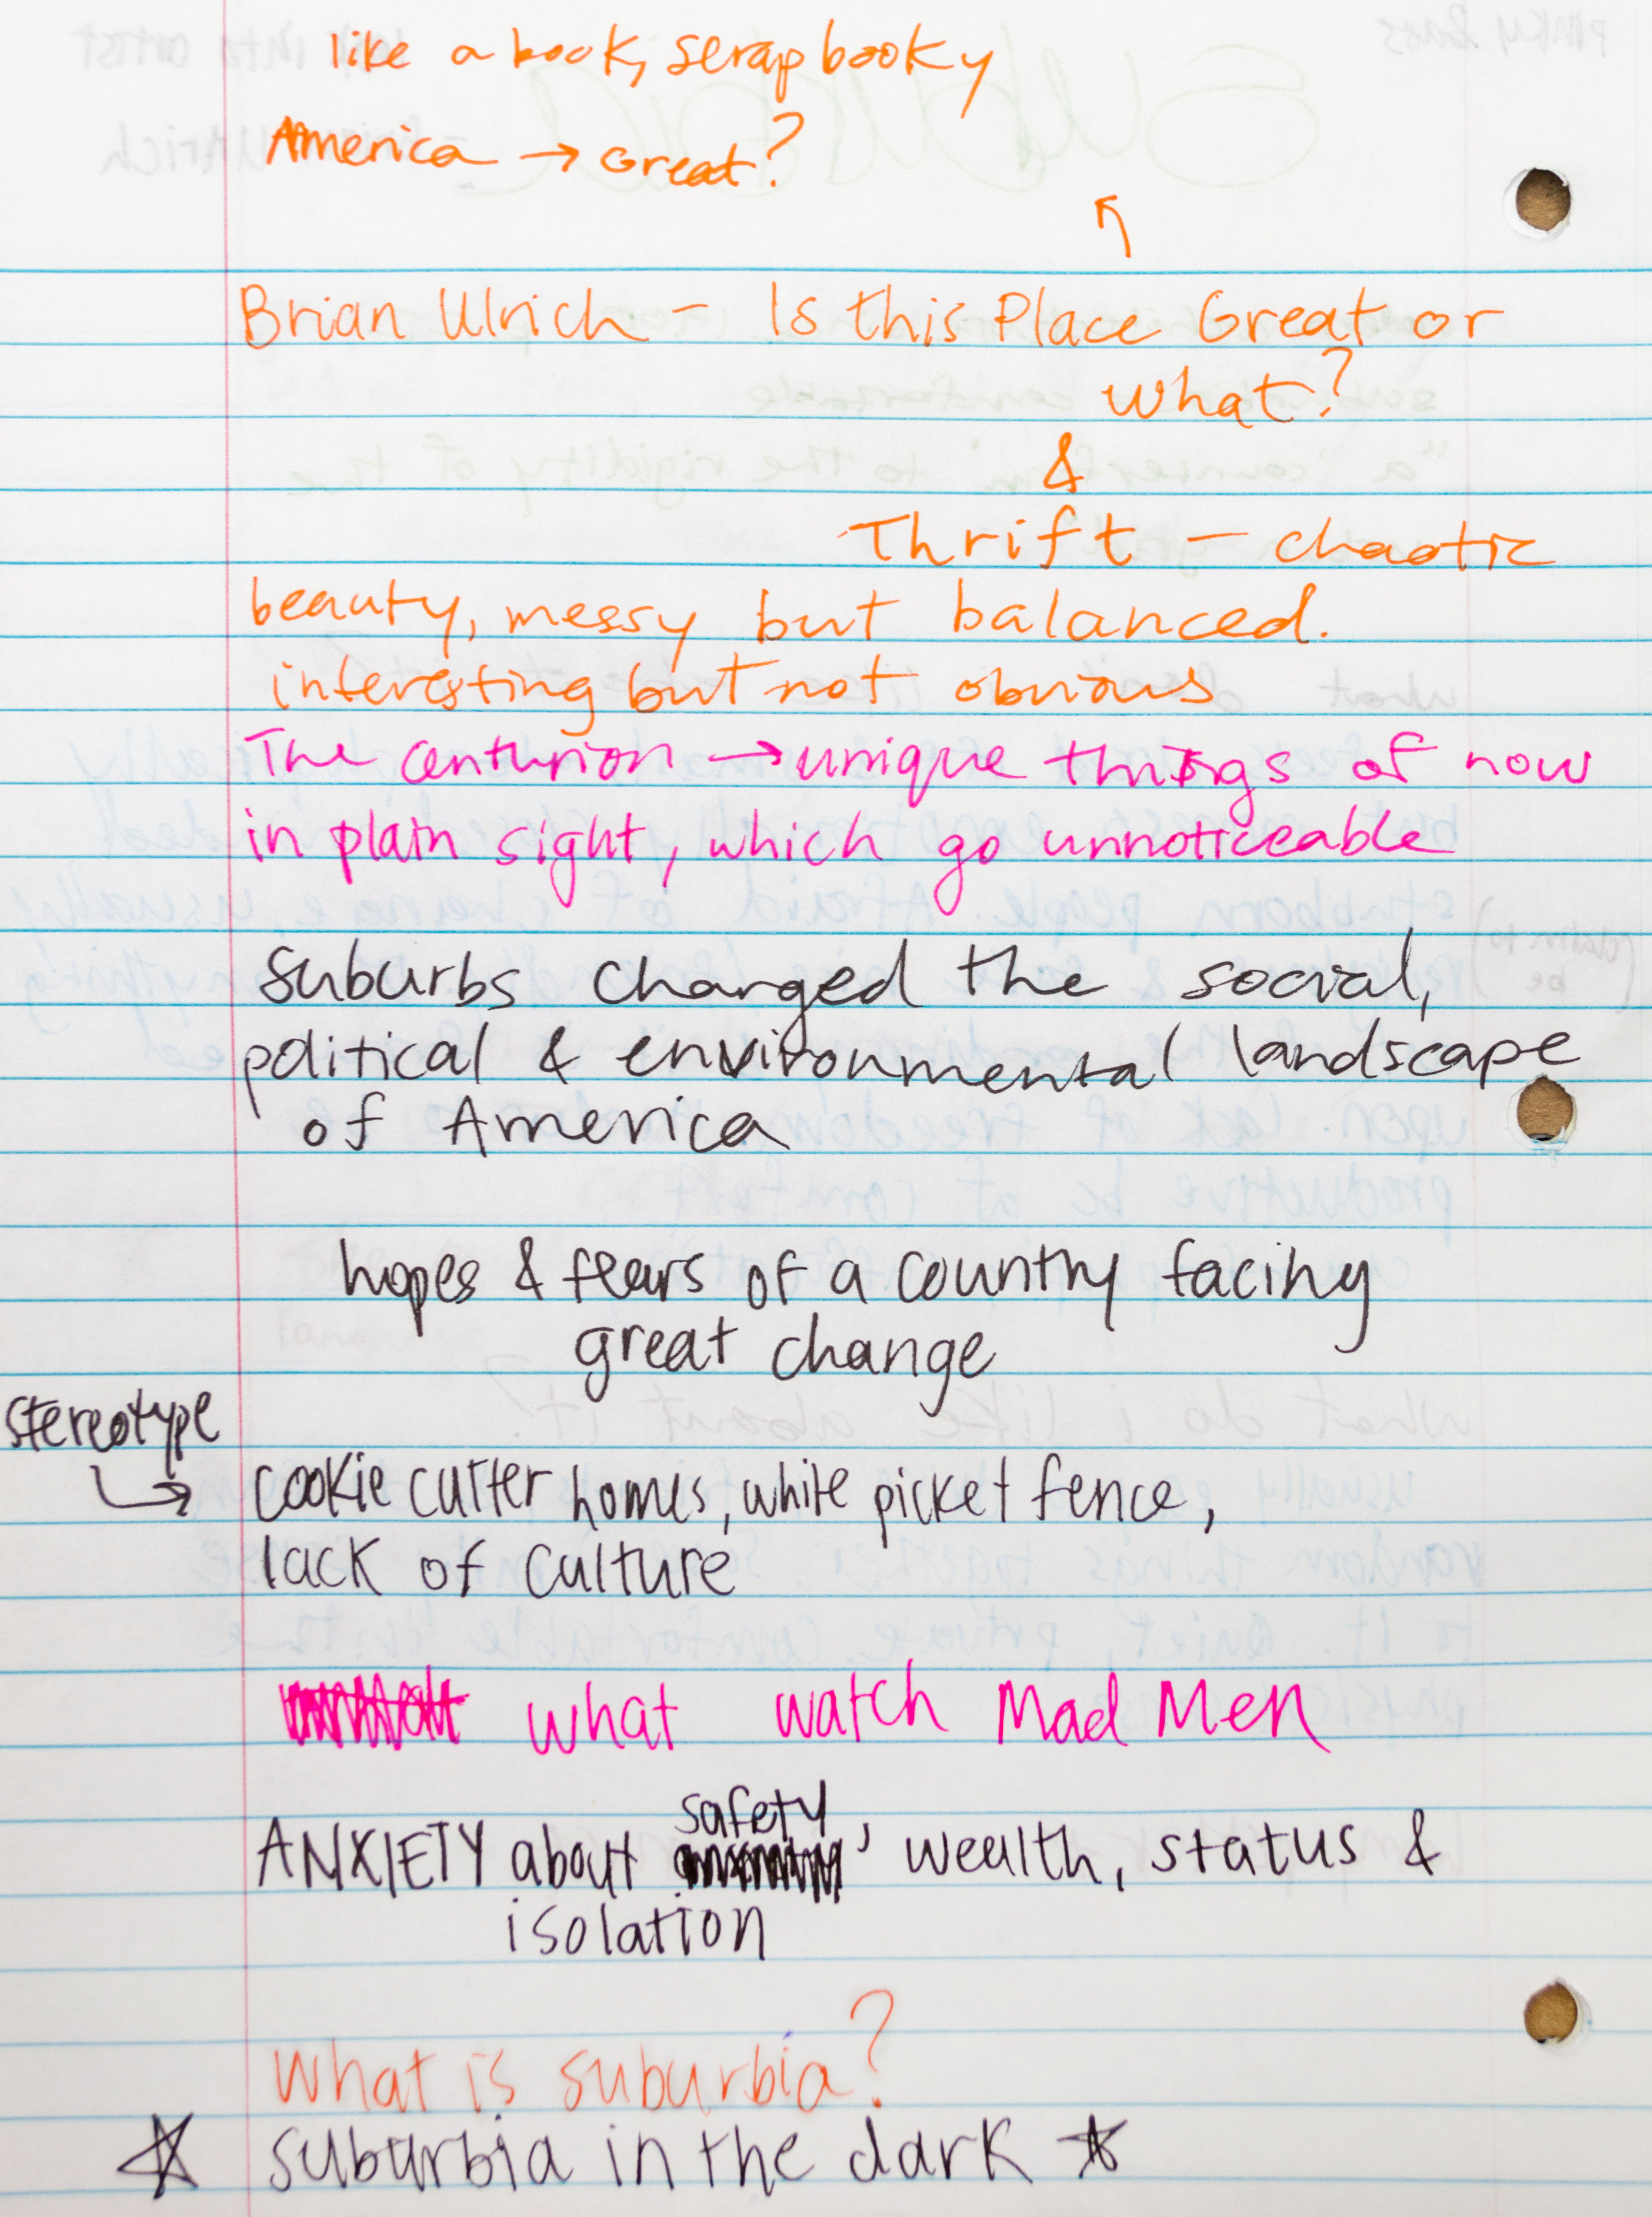 like a book, scrapbooky
America → Great?
↖
Brian Ulrich - Is this Place Great or
what?
&
Thrift - chaotic
beauty, messy but balanced.
interesting but not obvious
The Centurion → unique things of now
in plain sight, which go unnoticeable
suburbs changed the social,
political & environmental landscape
of America
hopes & fears of a country facing
great change
stereotype
↳ cookie cutter homes, white picket fence,
lack of culture
what watch Mad Men
safety
ANXIETY about , wealth, status &
isolation
What is suburbia?
☆ suburbia in the dark ☆